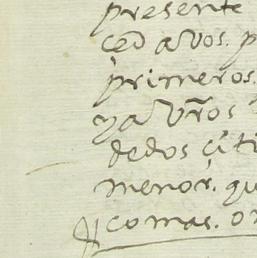 presente
ced a vos. p
primeros.
ya vr̃os
dedos citi
menor. qu
comas. on